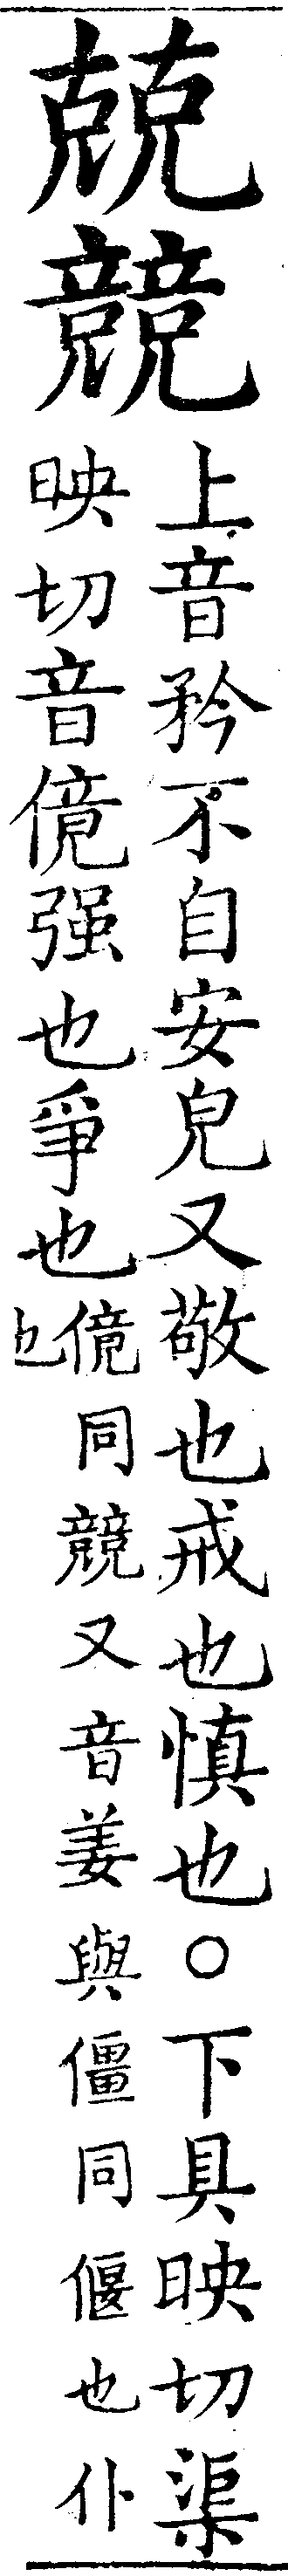 兢競
上音矜不自安皃又敬也戒也慎也○下具映切渠
映切音傹强也爭也傹同競又音姜與僵同偃也仆
也